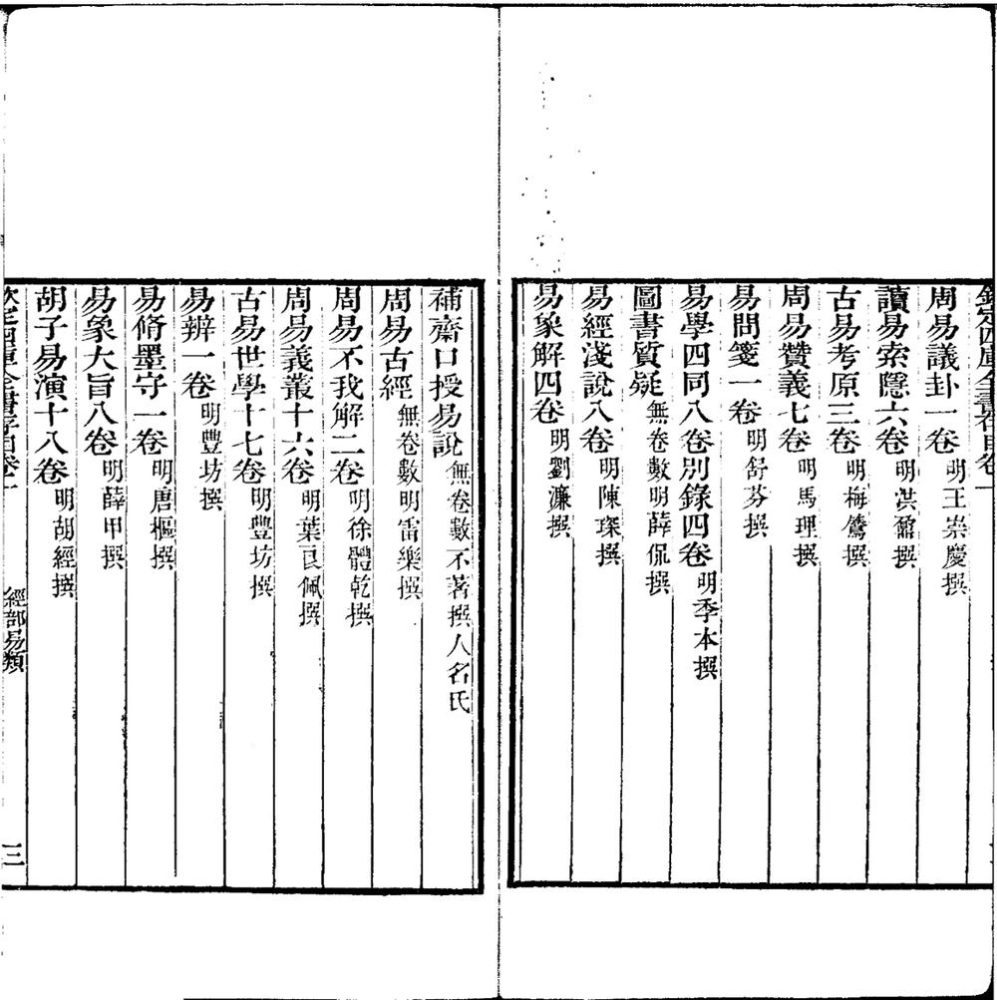 欽定四庫全書存目卷一
周易議卦一卷明王崇慶撰
讀易索隱六卷明洪鼐撰
古易考原三卷明梅鷟撰
周易贊義七卷明馬理撰
易問箋一卷明舒芬撰
易學四同八卷別錄四卷明季本撰
圖書質疑無卷數明薛侃撰
易經淺說八卷明陳琛撰
易象解四卷明劉濂撰
補齋口授易說無卷數不著撰人名氏
周易古經無卷數明雷樂撰
周易不我解二卷明徐體乾撰
周易義叢十六卷明葉良佩撰
古易世學十七卷明豐坊撰
易辨一卷明豐坊撰
易脩墨守一卷明唐樞撰
易象大旨八卷明薛甲撰
胡子易演十八卷明胡經撰
欽定四庫全書存目卷一 經部易類 三